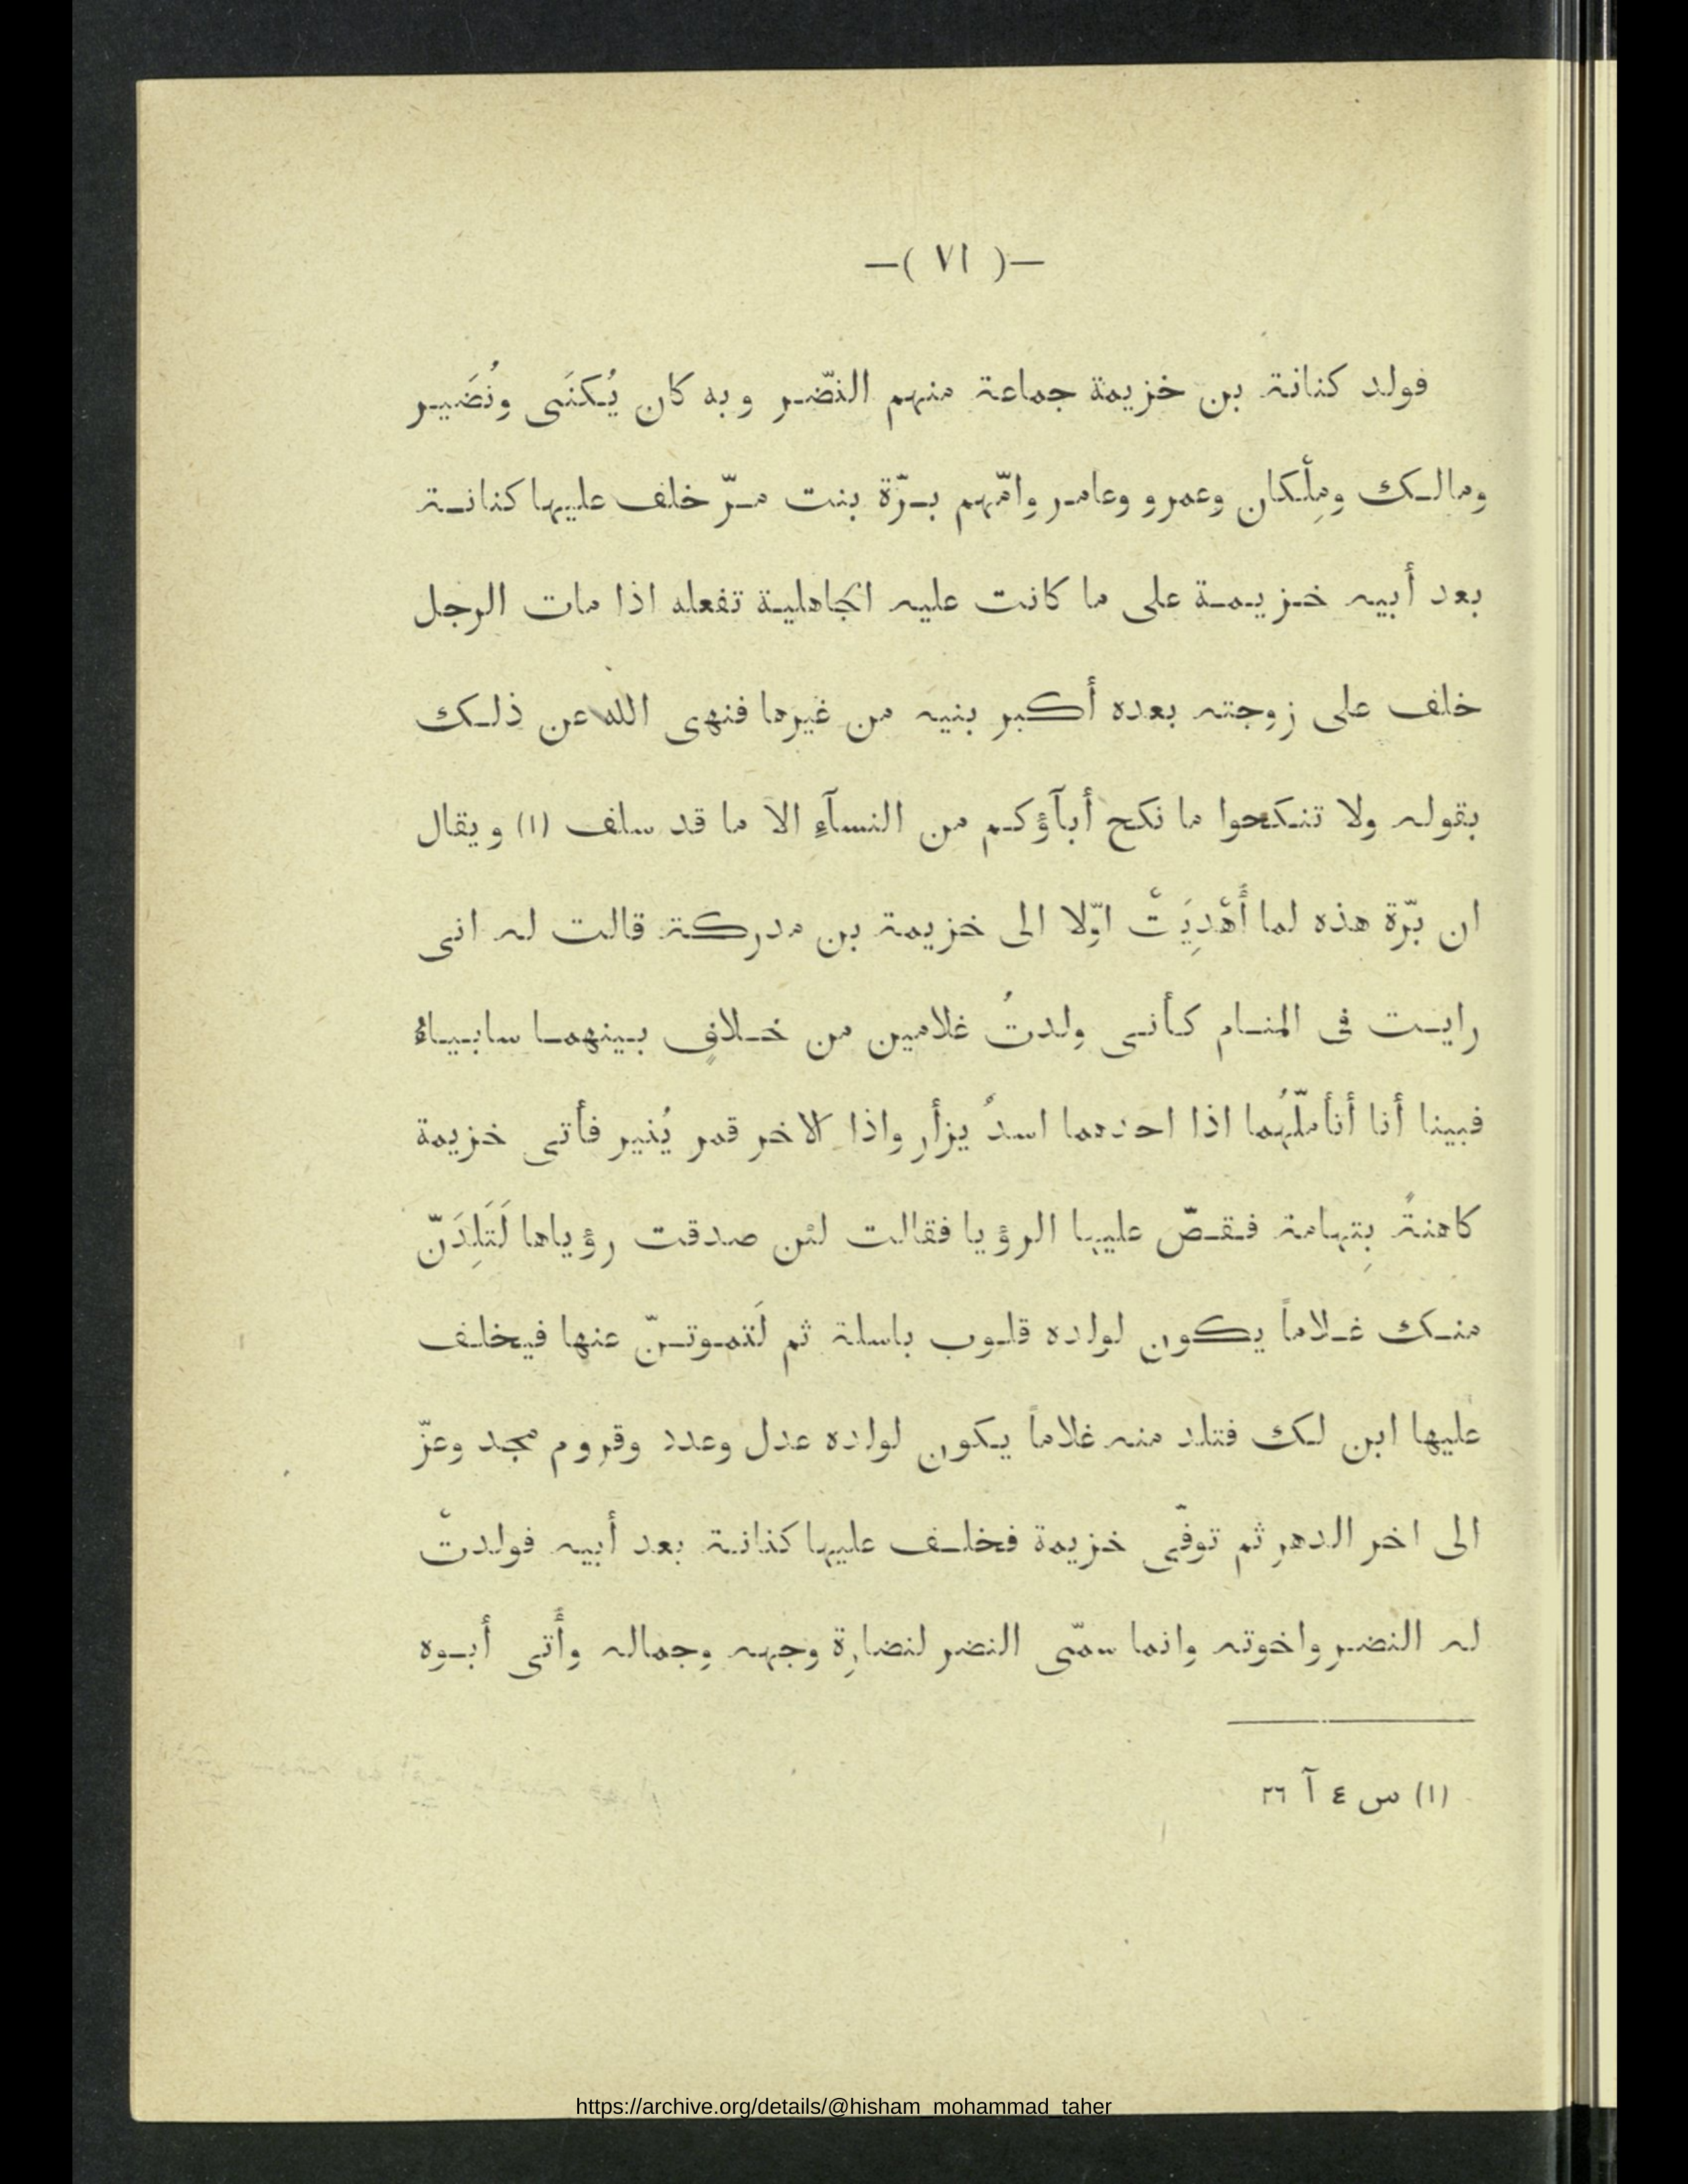 —( ٧١ )—
فولد كنانة بن خزيمة جماعة منهم النضّر وبه كان يُكنَى ونُضَير
ومالـك ومِلْكان وعمرو وعامر وامّهم بـرّة بنت مـرّ خلف عليها كنانـة
بعد أبيه خـزيـمـة على ما كانت عليه الجاهليـة تفعله اذا مات الرجل
خلف على زوجته بعده أكبر بنيه من غيرها فنهى الله عن ذلـك
بقوله ولا تنكحوا ما نكح أبآؤكم من النسآءِ الا ما قد سلف (١) ويقال
ان برّة هذه لما أُهْدِيَتْ اوّلا الى خزيمة بن مدركة قالت له انى
رايـت فى المنـام كـأنـى ولدتُ غلامين من خـلافٍ بـينهمـا سابـيـاءُ
فبينا أنا أتأملّهُما اذا احدهما اسدٌ يزأر واذا الاخر قمر يُنير فأتى خزيمة
كاهنةً بِتهامة فـقـصّ عليها الرؤيا فقالت لئن صدقت رؤياها لَتَلِدَنّ
منـك غـلاماً يكون لولده قلـوب باسلة ثم لَتمـوتـنّ عنها فيخلف
عليها ابن لـك فتلد منه غلاماً يـكون لولده عدل وعدد وقروم مجد وعزّ
الى اخر الدهر ثم توفّى خزيمة فخلـف عليها كنانـة بعد أبيه فولدتْ
له النضر واخوته وانما سمّى النضر لنضارة وجهه وجماله وأُتى أبـوه
(١) س ٤ آ ٢٦
https://archive.org/details/@hisham_mohammad_taher